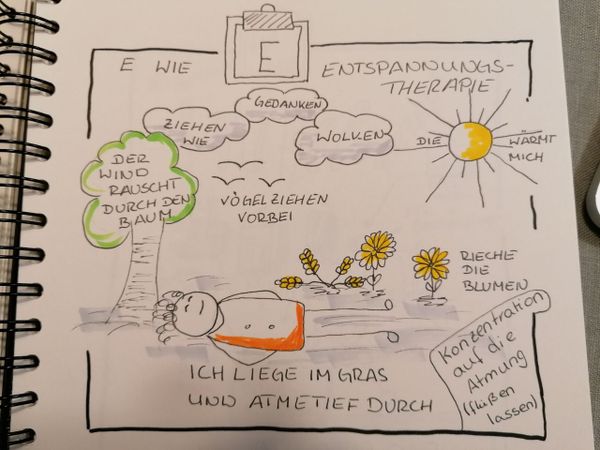 E WIE
E
ENTSPANNUNGS-
THERAPIE
GEDANKEN
ZIEHEN
WIE
WOLKEN
DIE
WÄRMT
MICH
DER
WIND
RAUSCHT
DURCH DEN
BAUM
VÖGEL ZIEHEN
VORBEI
RIECHE
DIE
BLUMEN
ICH LIEGE IM GRAS
UND ATME TIEF DURCH
Konzentration
auf die
Atmung
(fließen
lassen)